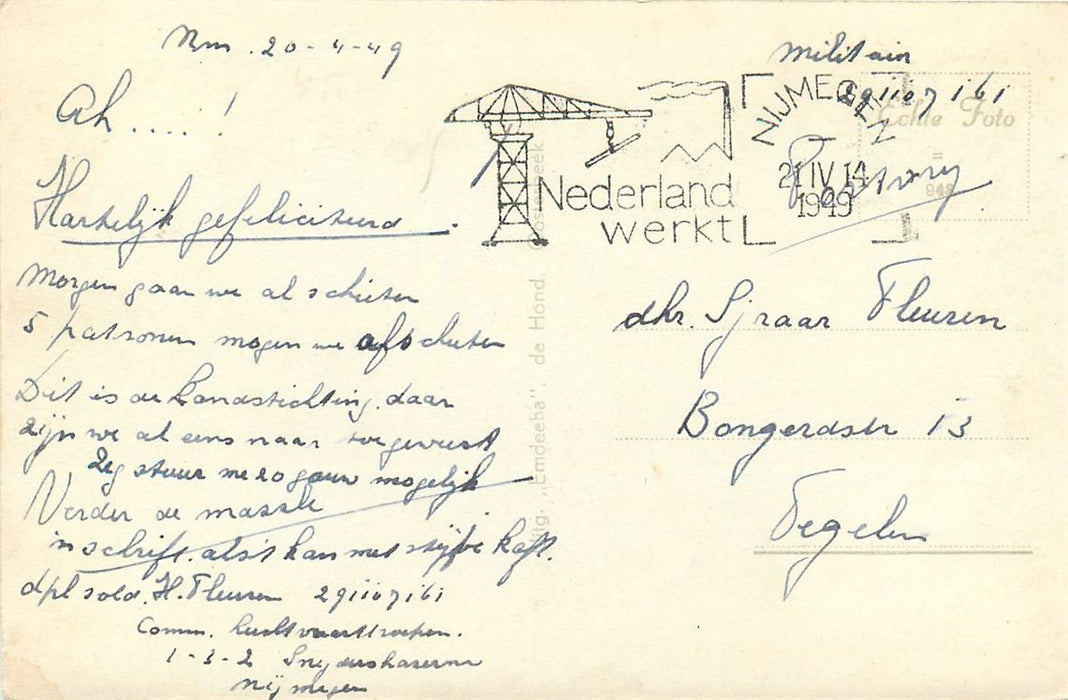 Nm. 20-4-49
Ah....!
Hartelijk gefeliciteerd.
Morgen gaan we al schieten
5 patronen mogen we afschieten
Dit is de Landstichting. daar
zijn we al eens naar toe geweest
Zeg stuur me zo gauw mogelijk
Verder de massle
inschrift. als't kan met stijve kaft.
dpl sold. H. Fleuren 291107161
Comm. Luchtvaarttroepen.
1-3-2 Snijderskazerne
Nijmegen
Militair
291107161
Echte Foto
=
949
NIJMEGEN
21 IV 14
1949
Nederland
werkt
dhr. Sjraar Fleuren
Bongerdstr 13
Tegelen
Uitg. „Emdeeba". de Hond.